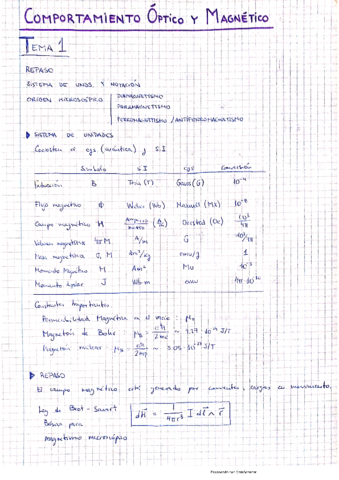 COMPORTAMIENTO ÓPTICO Y MAGNÉTICO
TEMA 1
REPASO
SISTEMA DE UNDS. Y NOTACIÓN
ORIGEN MICROSCÓPICO
DIAMAGNETISMO
PARAMAGNETISMO
FERROMAGNETISMO / ANTIFERROMAGNETISMO
▶ SISTEMA DE UNIDADES
Coexisten el cgs y S.I
Símbolo S.I cgs Conversión
B Tesla (T) Gauss (G) 10⁻⁴
Flujo magnético Φ Weber (Wb) Maxwell (Mx) 10⁻⁸
Campo magnético H Amperio/metro (A/m) Oersted (Oe) 10³/4π
4πM A/m G 10³/4π
Masa magnética σ, M Am²/kg emu/g 1
Momento Magnético M Am² 10⁻³
Momento J Wb m emu 4π·10⁻¹⁰
Constantes Importantes:
Permeabilidad Magnética en el vacío: μ₀
Magnetón de Bohr: μ_B = eℏ/2me ~ 10⁻²⁴ J/T
Magnetón nuclear: = eℏ/2mp ~ 5.05·10⁻²⁷ J/T
▶ REPASO
El campo magnético está generado por corrientes, cargas en movimiento.
Ley de Biot - Savart
dH = 1/4πr³ I dl ∧ r
para
magnetismo microscópico